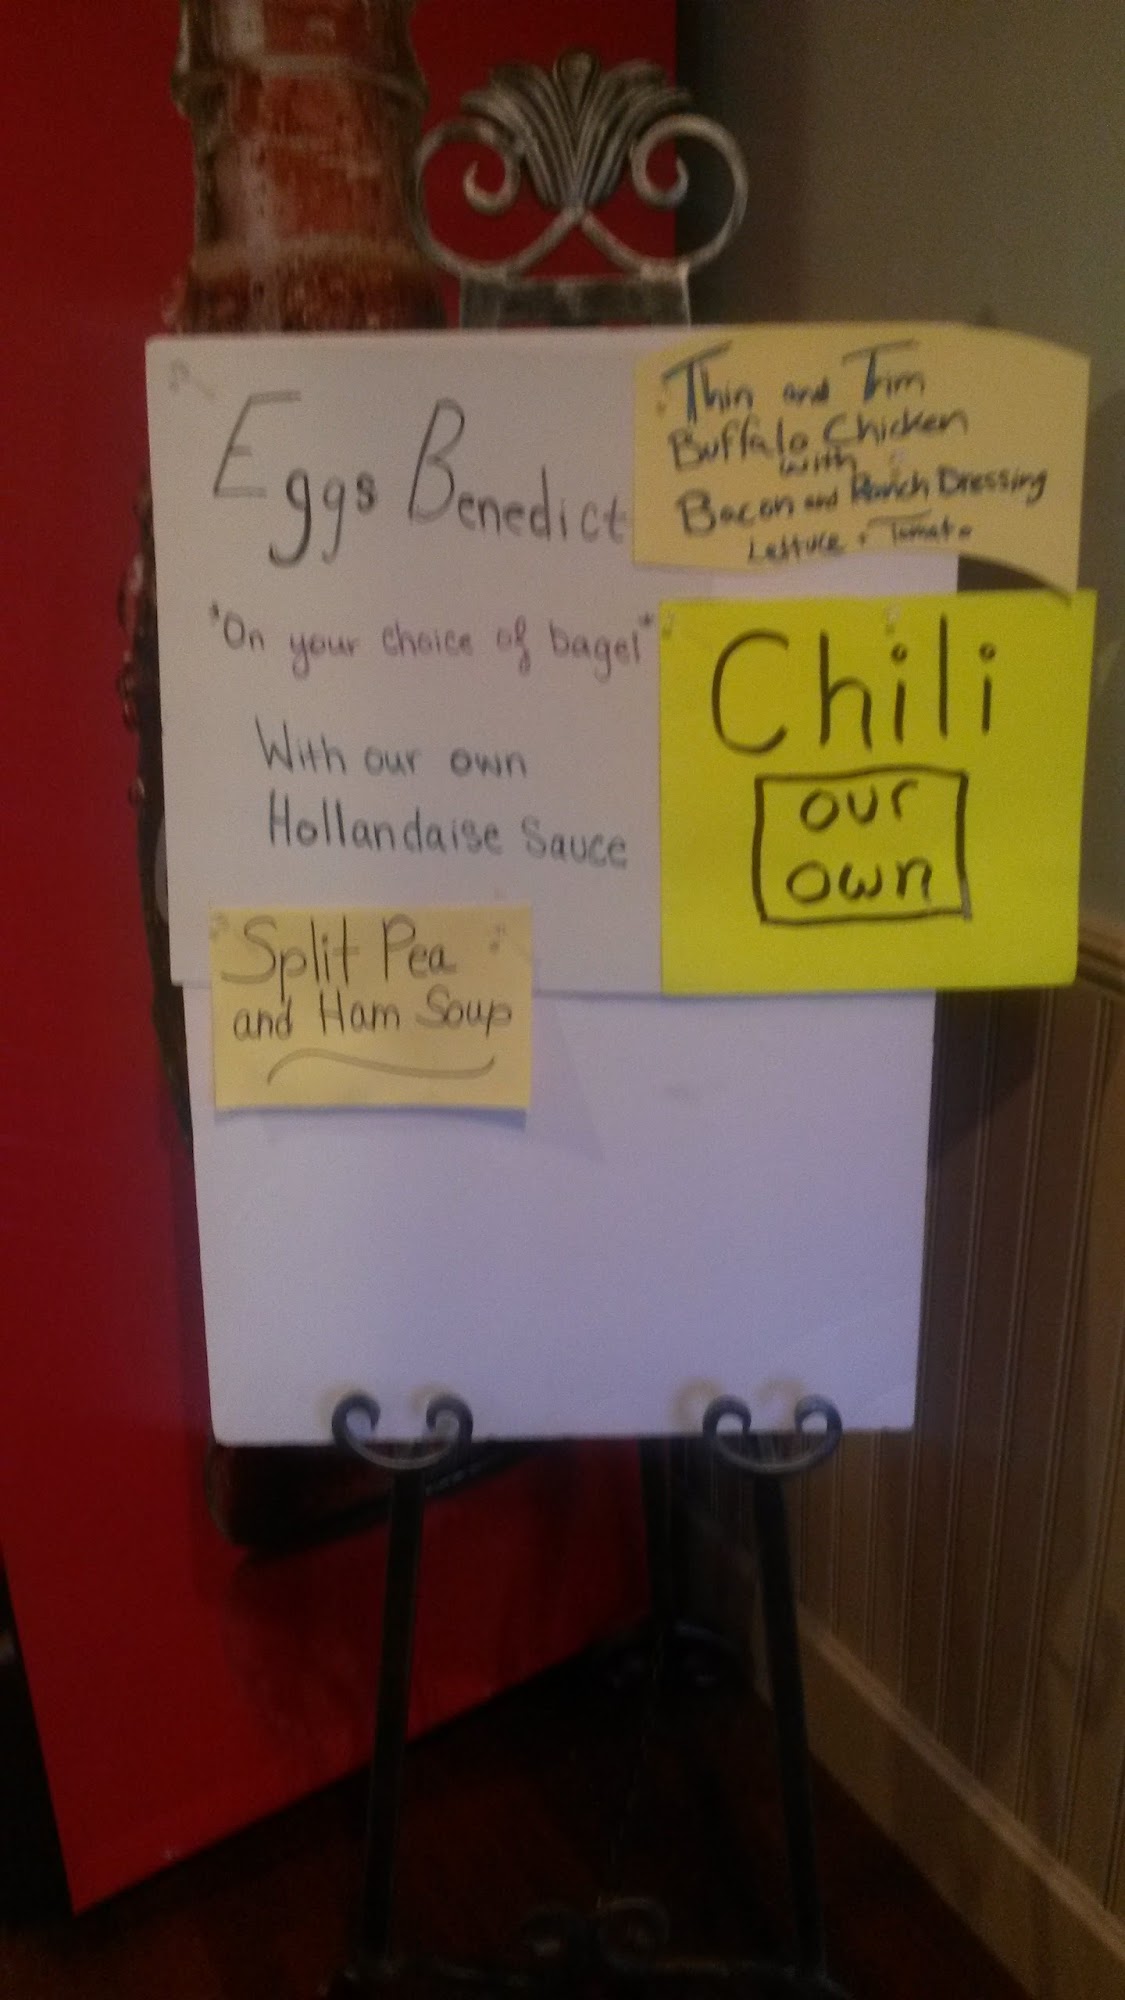 Eggs Benedict
"On your choice of bagel"
With our own
Hollandaise Sauce
Thin and Trim
Buffalo Chicken
with
Bacon and Ranch Dressing
Lettuce + Tomato
Chili
our
own
Split Pea
and Ham Soup